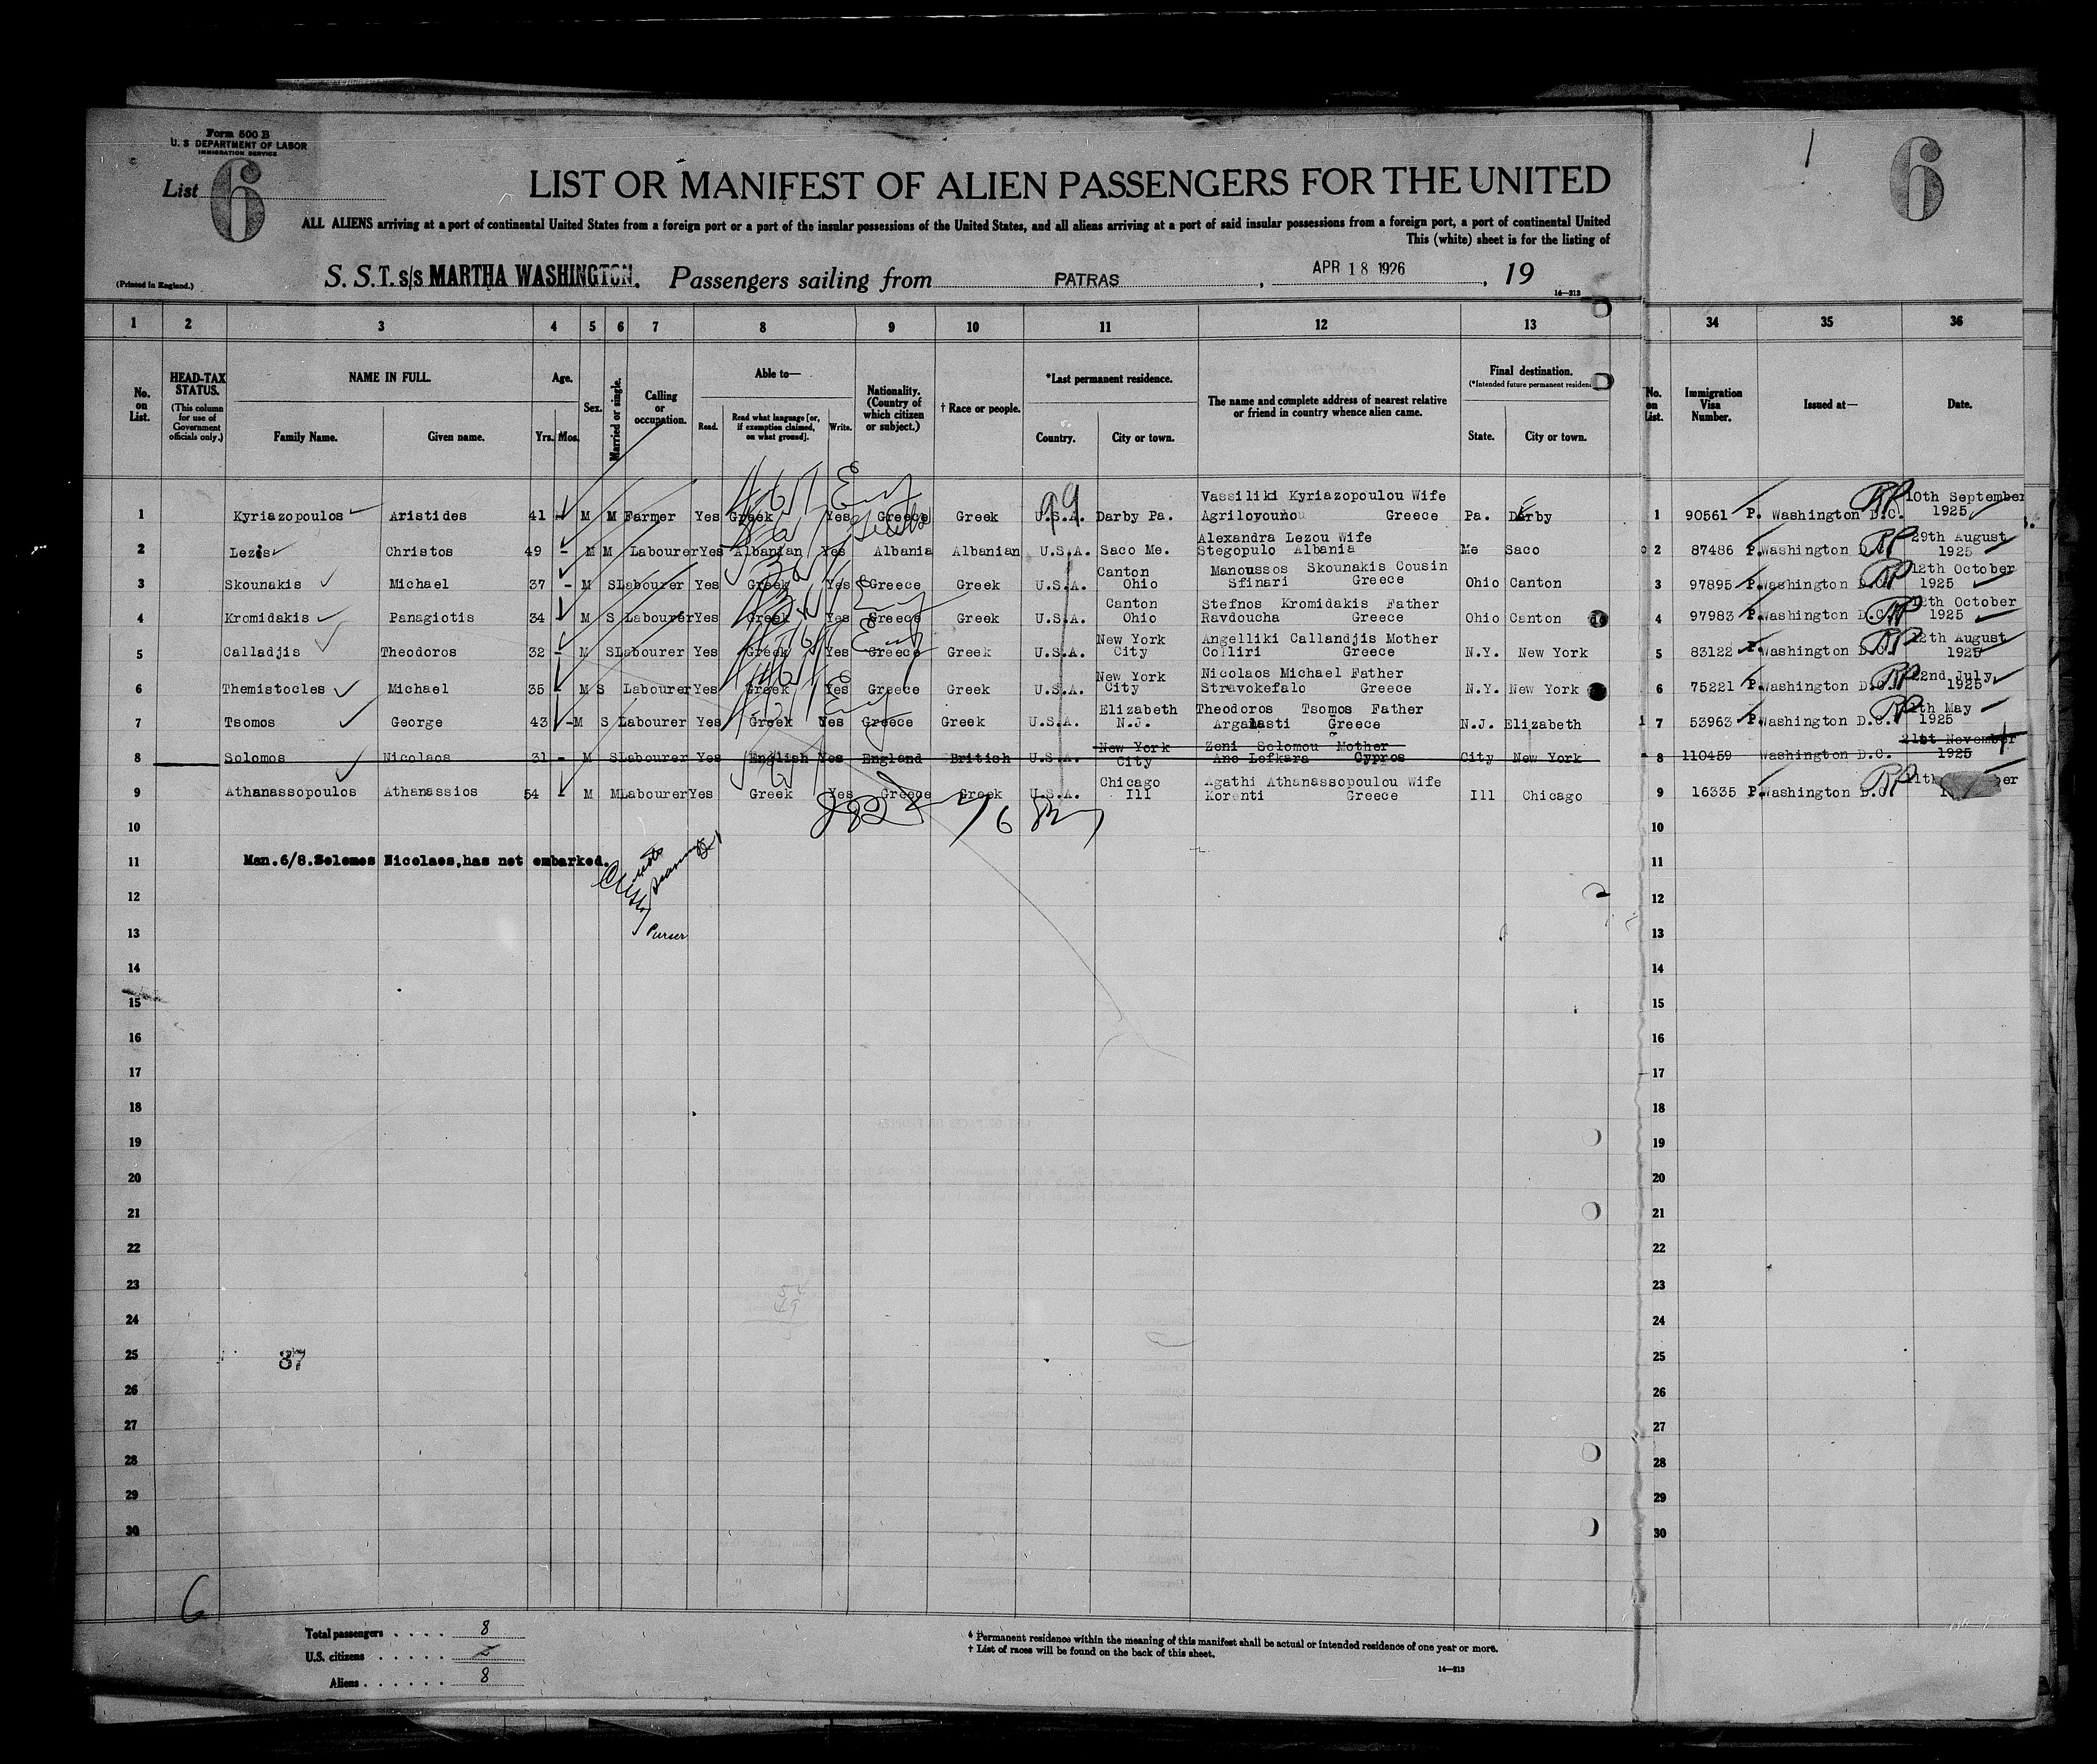 Form 500 B
U. S DEPARTMENT OF LABOR
IMMIGRATION SERVICE
List 6
6
LIST OR MANIFEST OF ALIEN PASSENGERS FOR THE UNITED
ALL ALIENS arriving at a port of continental United States from a foreign port or a port of the insular possessions of the United States, and all aliens arriving at a port of said insular possessions from a foreign port, a port of continental United
This (white) sheet is for the listing of
(Printed in England.)
S. S. T. s/s MARTHA WASHINGTON. Passengers sailing from PATRAS, APR 18 1926, 19
14—213
1 2 3 4 5 6 7 8 9 10 11 12 13 34 35 36
No. on List.
HEAD-TAX STATUS.
(This column for use of Government officials only.)
NAME IN FULL.
Family Name. Given name.
Age.
Yrs. Mos.
Sex.
Married or single.
Calling or occupation.
Able to—
Read. Read what language [or, if exemption claimed, on what ground]. Write.
Nationality. (Country of which citizen or subject.)
† Race or people.
*Last permanent residence.
Country. City or town.
The name and complete address of nearest relative or friend in country whence alien came.
Final destination.
(*Intended future permanent residence
State. City or town.
No. on List.
Immigration Visa Number.
Issued at—
Date.
99
1 Kyriazopoulos Aristides 41 - M M Farmer Yes Greek Yes Greece Greek U.S.A. Darby Pa. Vassiliki Kyriazopoulou Wife Agriloyounou Greece Pa. Darby 1 90561 P. Washington D.C. 10th September 1925
2 Lezos Christos 49 - M M Labourer Yes Albanian Yes Albania Albanian U.S.A. Saco Me. Alexandra Lezou Wife Stegopulo Albania Me Saco 2 87486 P. Washington D.C. 29th August 1925
3 Skounakis Michael 37 - M S Labourer Yes Greek Yes Greece Greek U.S.A. Canton Ohio Manoussos Skounakis Cousin Sfinari Greece Ohio Canton 3 97895 P. Washington D.C. 12th October 1925
4 Kromidakis Panagiotis 34 - M S Labourer Yes Greek Yes Greece Greek U.S.A. Canton Ohio Stefnos Kromidakis Father Ravdoucha Greece Ohio Canton 4 97983 P. Washington D.C. October 1925
5 Calladjis Theodoros 32 - M S Labourer Yes Greek Yes Greece Greek U.S.A. New York City Angelliki Callandjis Mother Colliri Greece N.Y. New York 5 83122 P. Washington D.C. 12th August 1925
6 Themistocles Michael 35 - M S Labourer Yes Greek Yes Greece Greek U.S.A. New York City Nicolaos Michael Father Stravokefalo Greece N.Y. New York 6 75221 P. Washington D.C. 22nd July 1925
7 Tsomos George 43 - M S Labourer Yes Greek Yes Greece Greek U.S.A. Elizabeth N.J. Theodoros Tsomos Father Argalasti Greece N.J. Elizabeth 7 53963 P. Washington D.C. May 1925
8 Solomos Nicolaos 31 - M S Labourer Yes English Yes England British U.S.A. New York City Zeni Solomou Mother Ano Lefkara Cypros City New York 8 110459 Washington D.C. 21st November 1925
9 Athanassopoulos Athanassios 54 - M M Labourer Yes Greek Yes Greece Greek U.S.A. Chicago Ill Agathi Athanassopoulou Wife Korenti Greece Ill Chicago 9 16335 P. Washington D.C.
10 10
11 Man.6/8.Solomos Nicolaos,has not embarked. 11
Purser
12 12
13 13
14 14
15 15
16 16
17 17
18 18
19 19
20 20
21 21
22 22
23 23
24 24
25 37 25
26 26
27 27
28 28
29 29
30 30
6
Total passengers . . . . 8
U.S. citizens . . . . . .
Aliens . . . . . . 8
* Permanent residence within the meaning of this manifest shall be actual or intended residence of one year or more.
† List of races will be found on the back of this sheet.
14—213